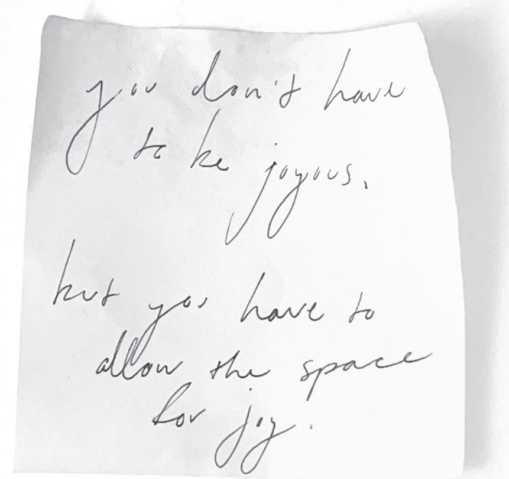 you don't have
to be joyous,
but you have to
allow the space
for joy.